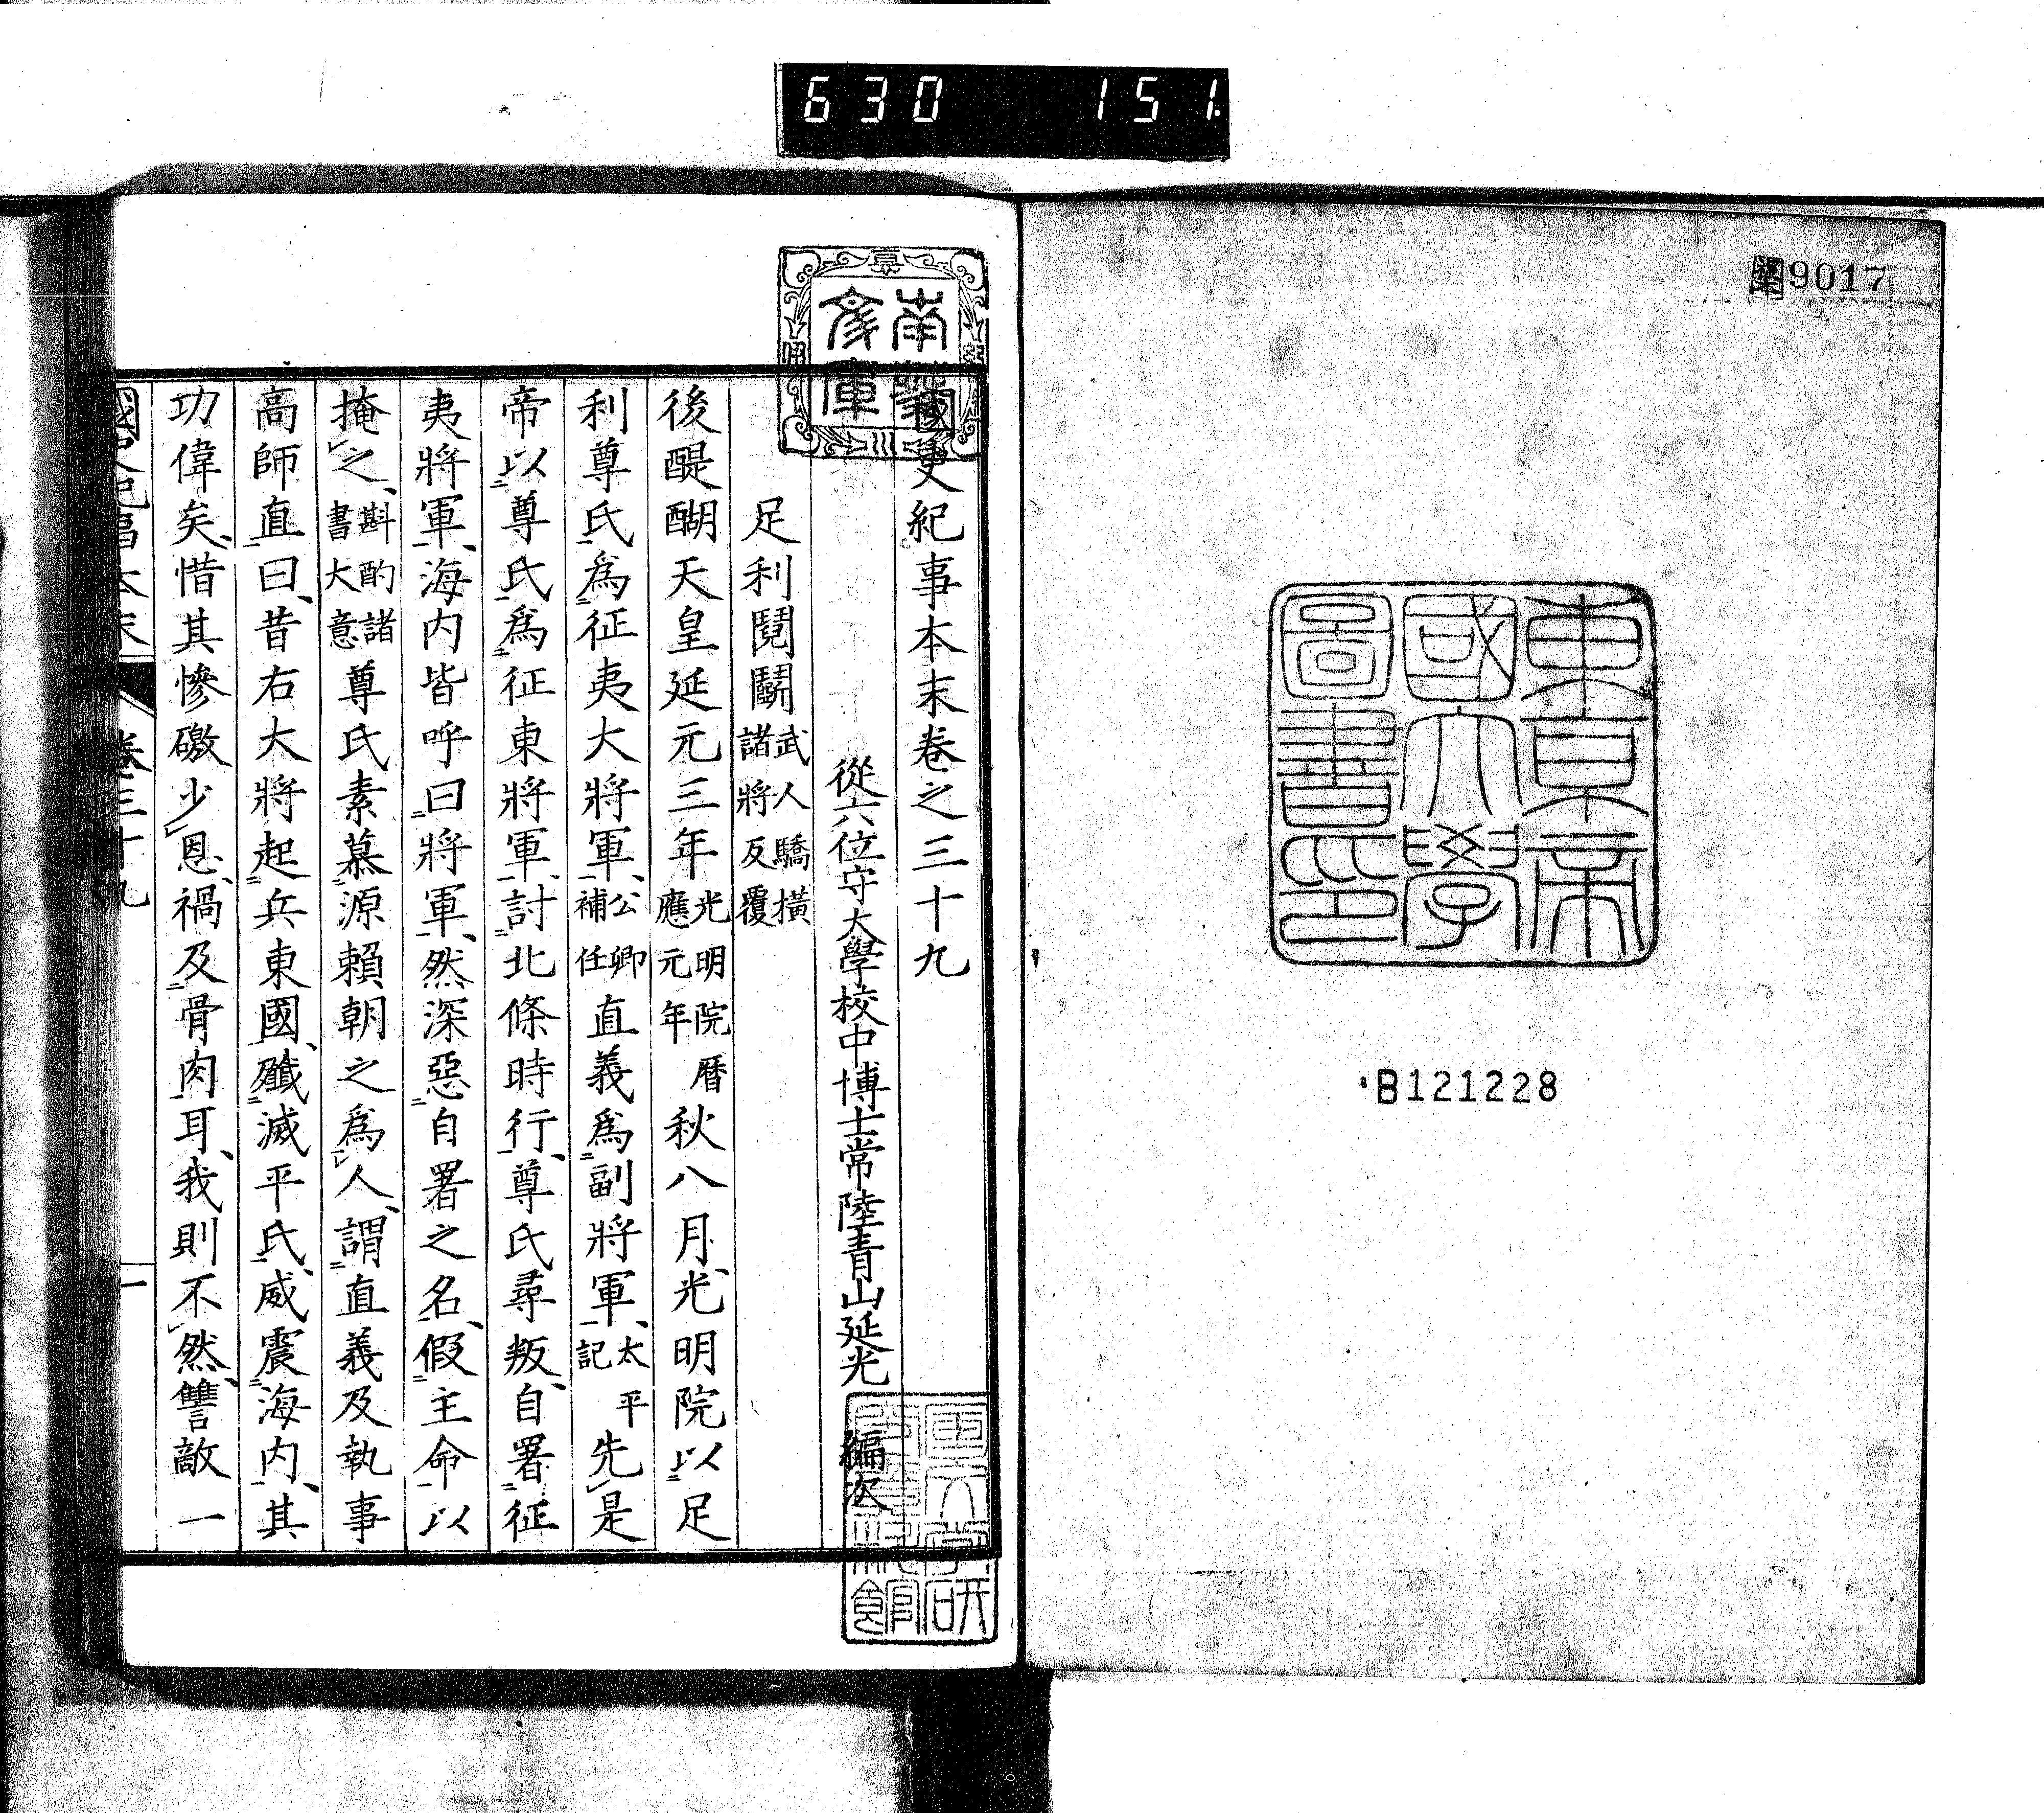 630 151
9017
東京帝
國大學
圖書印
B121228
國史紀事本末卷之三十九
從六位守大學校中博士常陸青山延光 編次
足利鬩鬭 武人驕橫 諸將反覆
後醍醐天皇延元三年 光明院曆 應元年 秋八月、光明院以足
利尊氏爲征夷大將軍、公卿 補任 直義爲副將軍、太平 記 先是
帝以尊氏爲征東將軍、討北條時行、尊氏尋叛、自署征
夷將軍、海内皆呼曰將軍、然深惡自署之名、假主命以
掩之、斟酌諸 書大意 尊氏素慕源賴朝之爲人、謂直義及執事
高師直曰、昔右大將起兵東國、殲滅平氏、威震海内、其
功偉矣、惜其慘礉少恩、禍及骨肉耳、我則不然、讐敵一
卷三十九
一